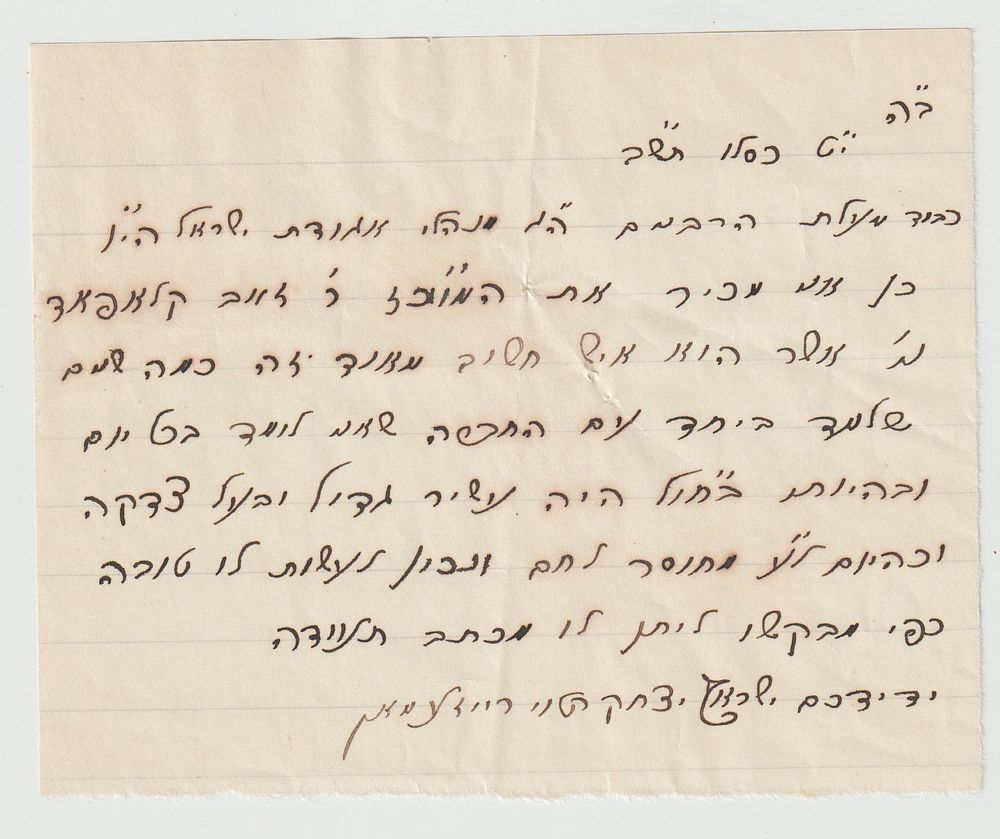 ב"ה
י"ט כסלו תש"ב
כבוד מעלת הרבנים הג' מנהלי אגודת ישראל הי"ו
כן אני מכיר את המוכ"ז ר' זאב קלאפאד
נ"י אשר הוא איש חשוב מאוד זה כמה שנים
שלמד ביחד עם החבורה שאני לומד בכל יום
ובהיותו בחו"ל היה עשיר גדול ובעל צדקה
וכהיום ל"ע מחוסר לחם ונכון לעשות לו טובה
כפי מבקשו ליתן לו מכתב תעודה
ידידכם ישראל יצחק הלוי רייזמאן